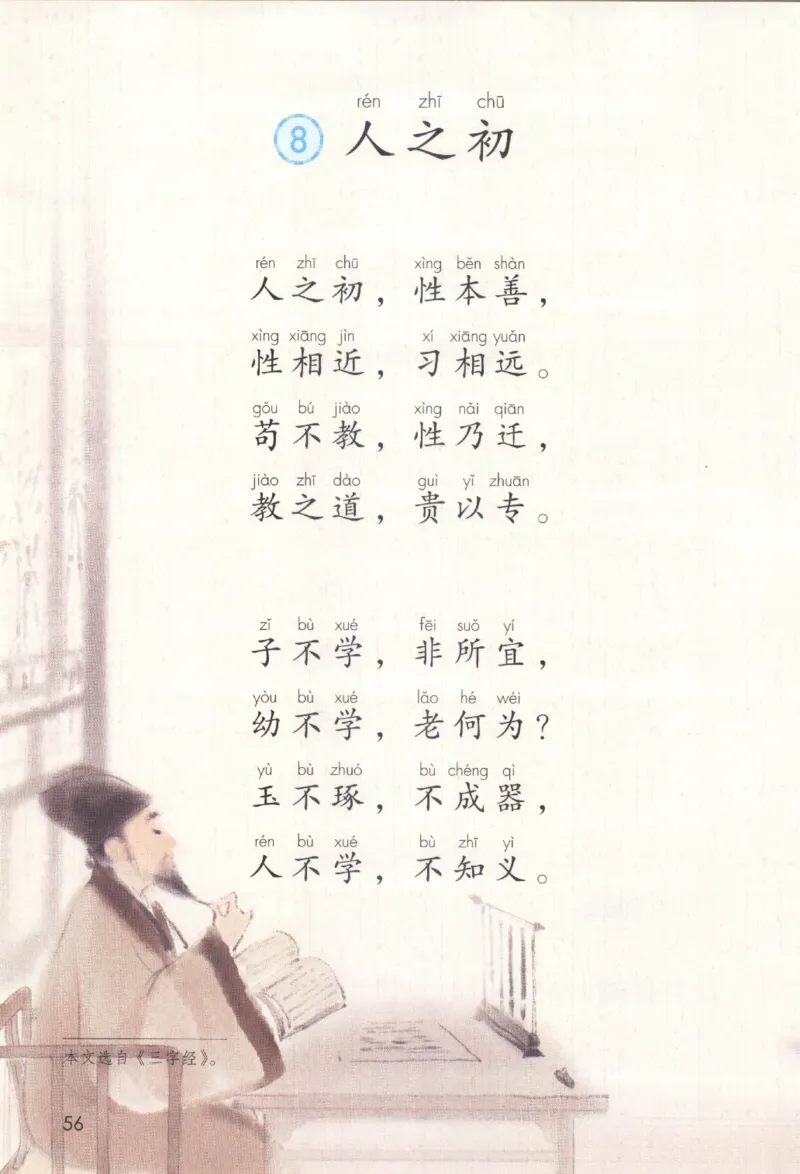 rén zhī chū
8 人之初
rén zhī chū xìng běn shàn
人之初，性本善，
xìng xiāng jìn xí xiāng yuǎn
性相近，习相远。
gǒu bú jiào xìng nǎi qiān
苟不教，性乃迁，
jiào zhī dào guì yǐ zhuān
教之道，贵以专。
zǐ bù xué fēi suǒ yí
子不学，非所宜，
yòu bù xué lǎo hé wéi
幼不学，老何为？
yù bù zhuó bù chéng qì
玉不琢，不成器，
rén bù xué bù zhī yì
人不学，不知义。
本文选自《三字经》。
56